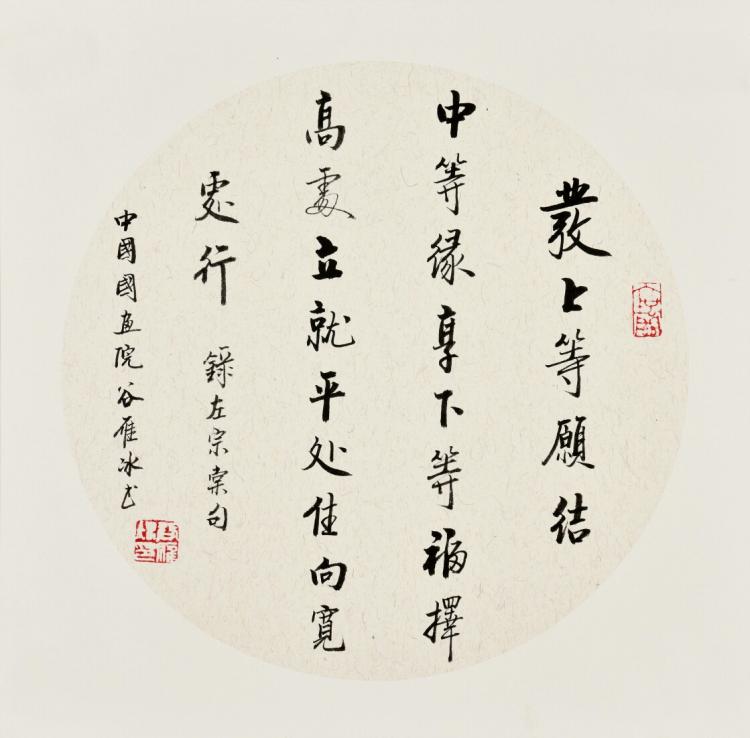 發上等願結
中等緣享下等福擇
高處立就平处住向寬
處行
錄左宗棠句
中國國画院谷雁冰书